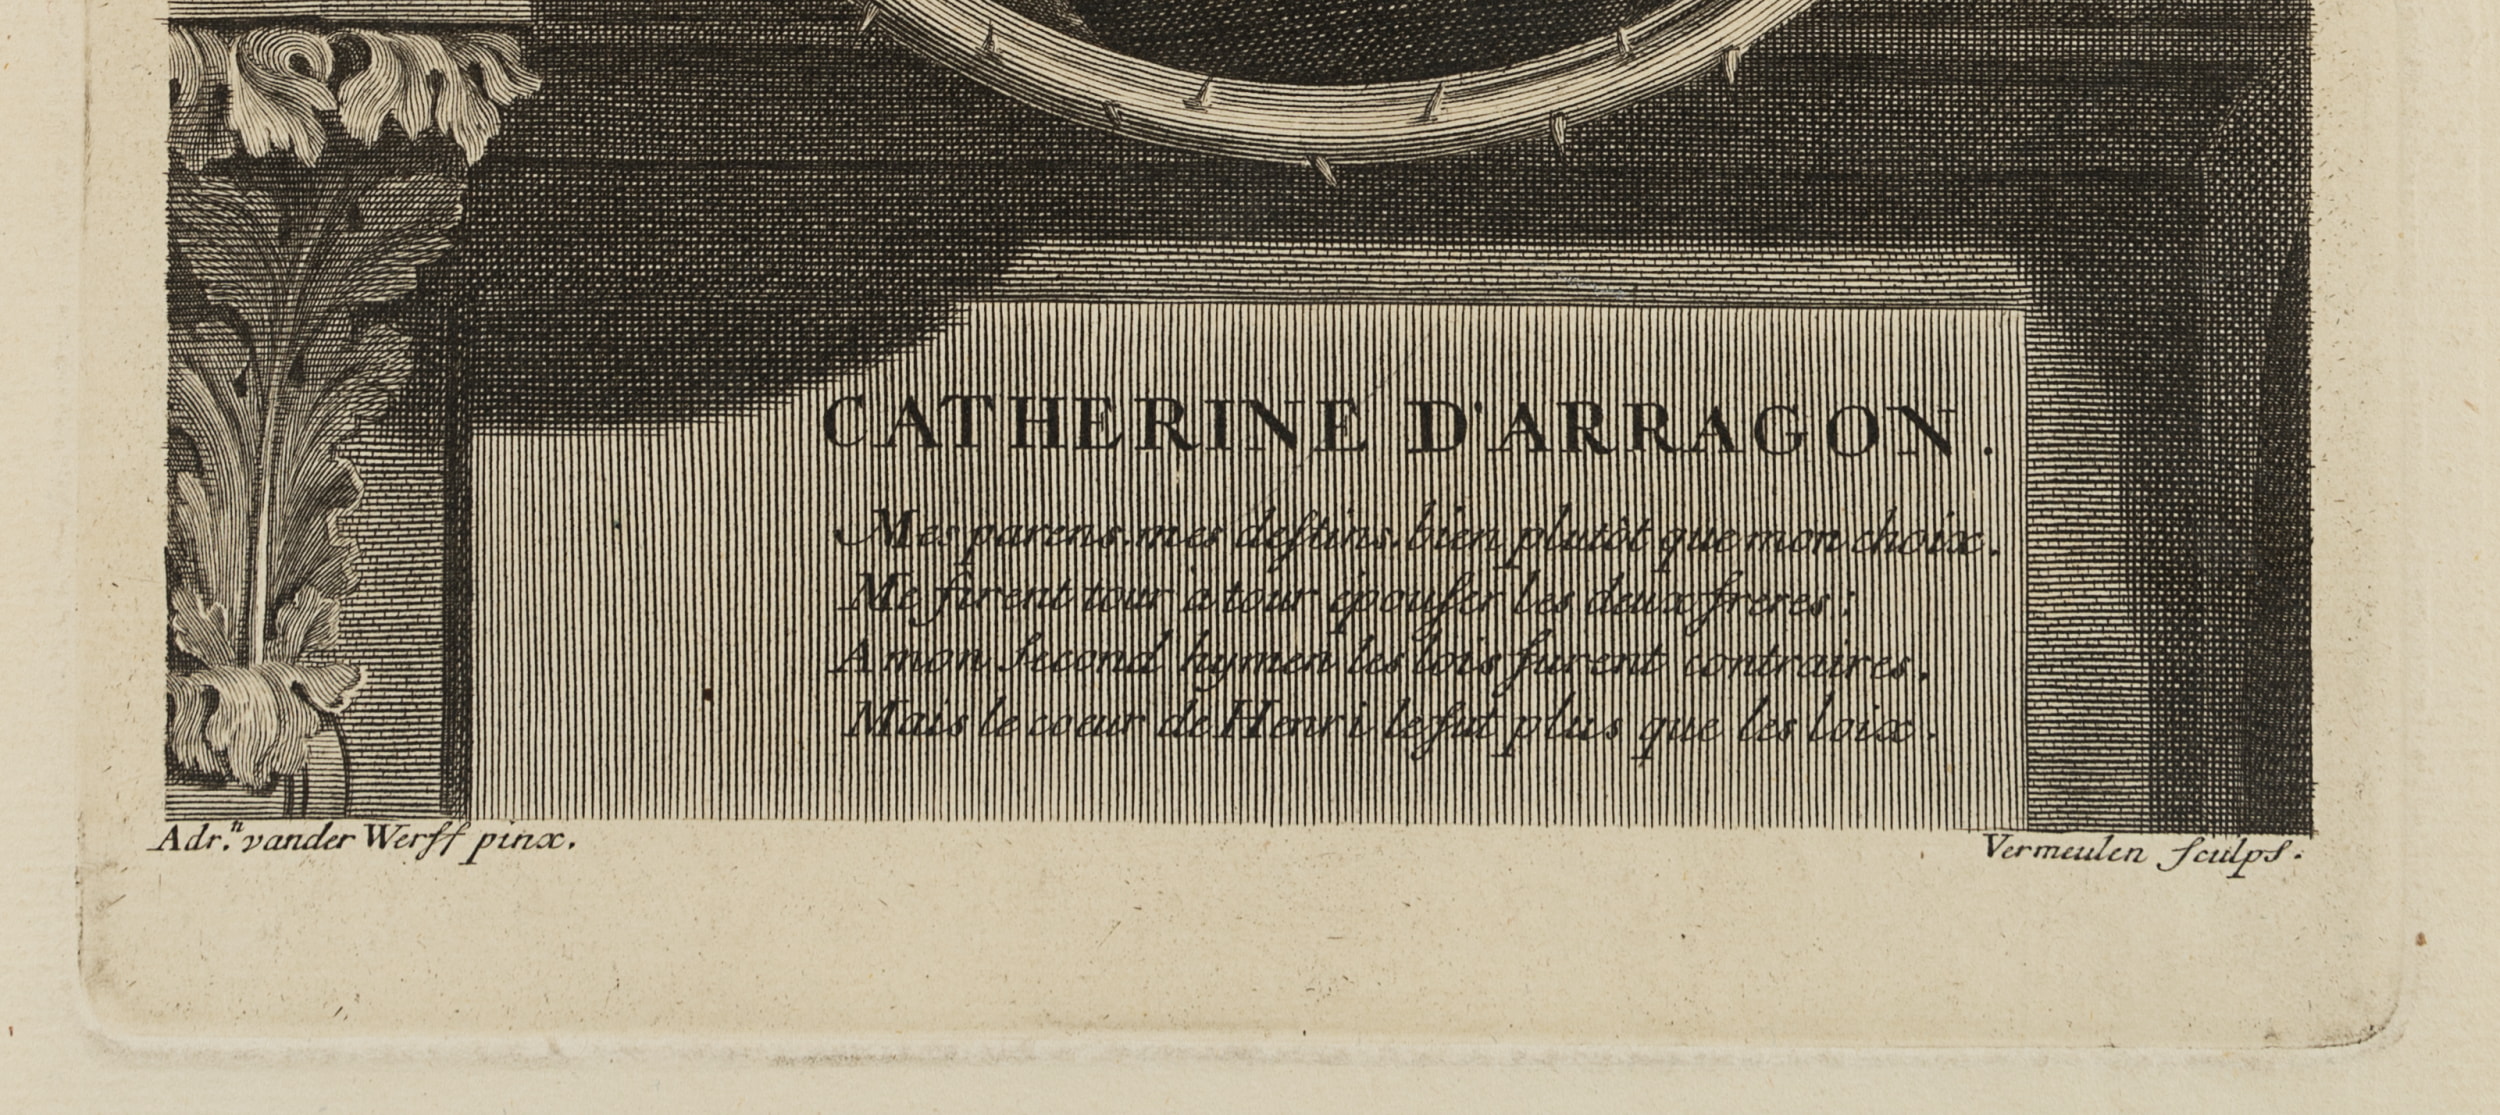 CATHERINE D'ARRAGON.
Mes parens, mes destins, bien plutôt que mon choix,
Me firent tour à tour épouser les deux freres;
A mon second hymen les lois furent contraires,
Mais le coeur de Henri le fut plus que les loix.
Adr.n vander Werff pinx.
Vermeulen sculps.